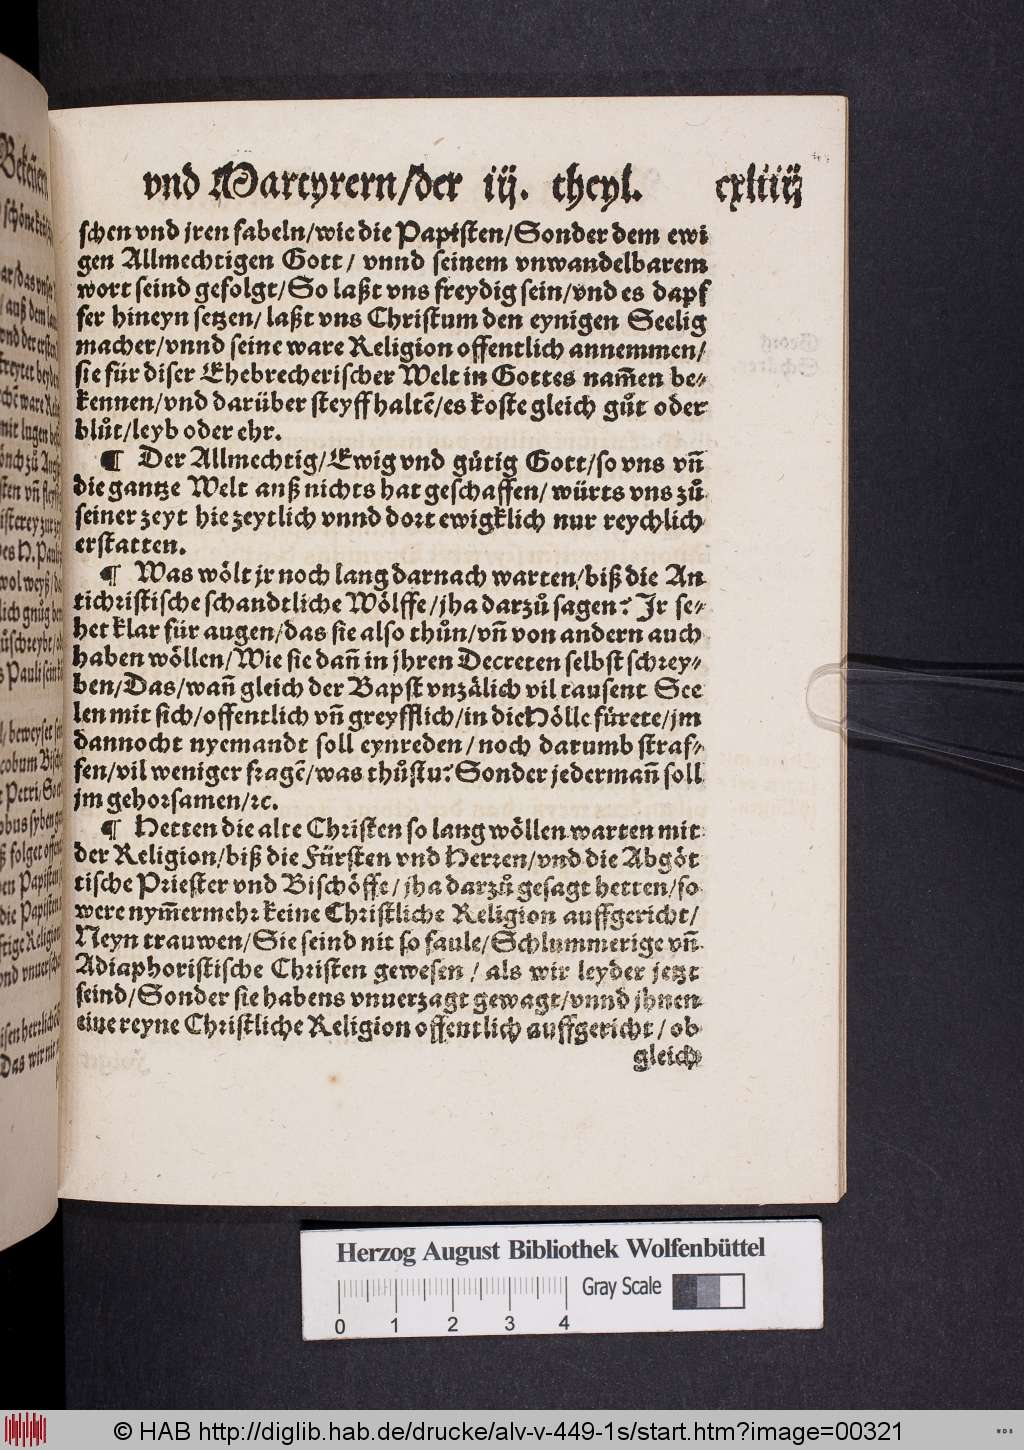 vnd Martyrern/der iij. theyl. cxliiij
schen vnd jren fabeln/wie die Papisten/Sonder dem ewi
gen Allmechtigen Gott/ vnnd seinem vnwandelbarem
wort seind gefolgt/So laßt vns freydig sein/vnd es dapf
fer hineyn setzen/ laßt vns Christum den eynigen Seelig
macher/vnnd seine ware Religion offentlich annemmen/
sie für diser Ehebrecherischer Welt in Gottes nam̃en be⸗
kennen/vnd darüber steyff haltẽ/es koste gleich gůt oder
blůt/leyb oder ehr.
¶ Der Allmechtig/Ewig vnd gütig Gott/so vns vñ
die gantze Welt auß nichts hat geschaffen/ würts vns zů
seiner zeyt hie zeytlich vnnd dort ewigklich nur reychlich
erstatten.
¶ Was wölt jr noch lang darnach warten/biß die An
tichristische schandtliche Wölffe/jha darzů sagen? Jr se⸗
het klar für augen/das sie also thůn/vñ von andern auch
haben wöllen/Wie sie dañ in jhren Decreten selbst schrey⸗
ben/Das/wañ gleich der Bapst vnzälich vil tausent See
len mit sich/offentlich vñ greyfflich/in die Hölle fürete/jm
dannocht nyemandt soll eynreden/noch darumb straf⸗
fen/vil weniger fragẽ/was thůstu? Sonder jedermañ soll
jm gehorsamen/ꝛc.
¶ Hetten die alte Christen so lang wöllen warten mit
der Religion/biß die Fürsten vnd Herren/vnd die Abgöt
tische Priester vnd Bischöffe/jha darzů gesagt hetten/so
were nym̃ermehr keine Christliche Religion auffgericht/
Neyn trauwen/Sie seind nit so faule/Schlummerige vñ
Adiaphoristische Christen gewesen/ als wir leyder jetzt
seind/Sonder sie habens vnuerzagt gewagt/vnnd jhnen
eine reyne Christliche Religion offentlich auffgericht/ ob
gleich
Herzog August Bibliothek Wolfenbüttel
Gray Scale
0 1 2 3 4
© HAB http://diglib.hab.de/drucke/alv-v-449-1s/start.htm?image=00321